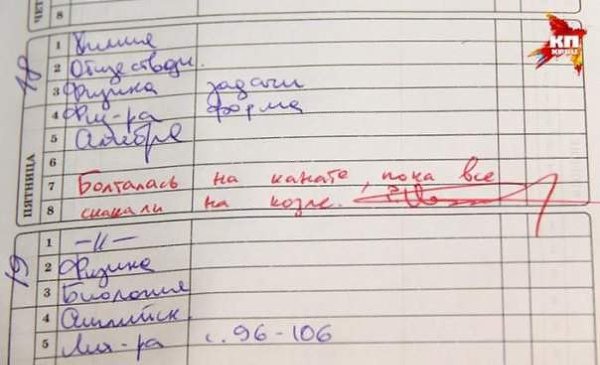 8
КП
KP.RU
18
ПЯТНИЦА
1 Химия
2 Обществозн.
3 Физика задачи
4 Физ-ра форма
5 Алгебра
6
7 Болталась на канате, пока все
8 скакали на козле.
19
1 —//—
2 Физика
3 Биология
4 Английск.
5 Лит-ра с. 96-106